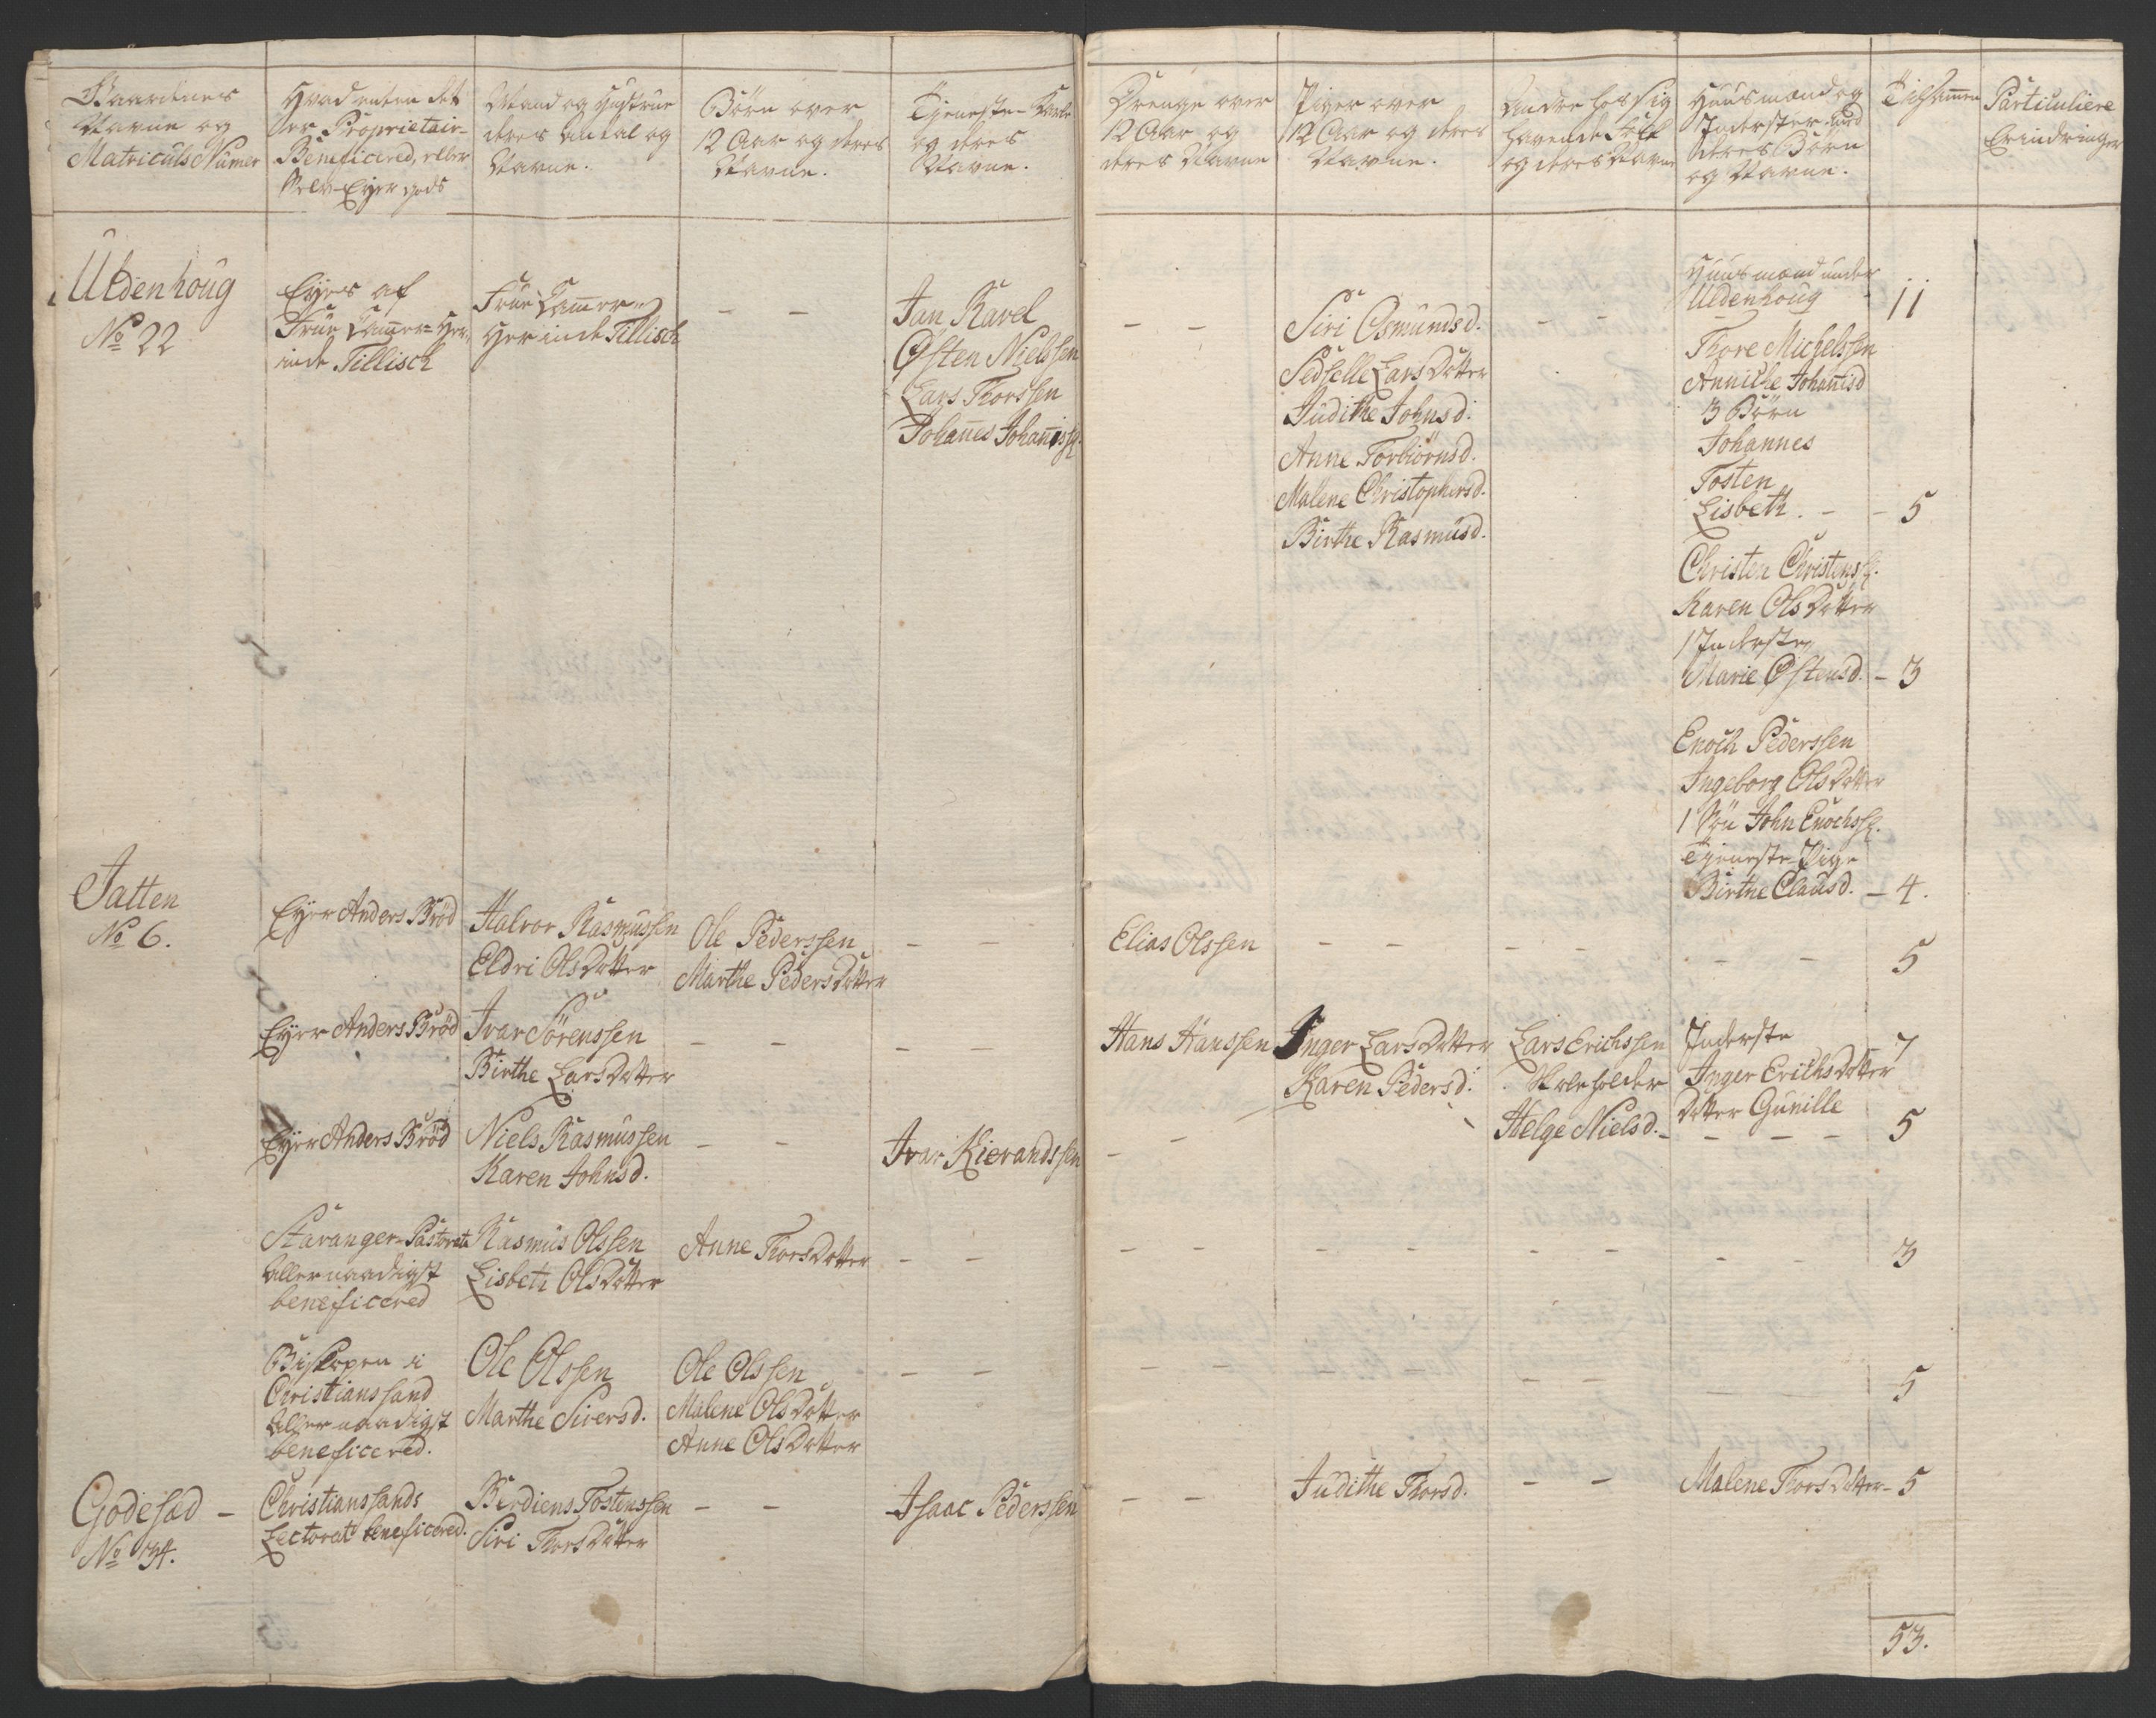 Gaardenes
Navne og
Matriculs Numer
Hvad enten det
er Proprietair-
Beneficered, eller
Selv-Eyer gods
Mand og Hustrue
deres antal og
Navne.
Børn over
12 Aar og deres
Navne.
Tjeneste-Karle
og deres
Navne.
Drenge over
12 Aar og
deres Navne
Piger over
12 Aar og deres
Navne.
Andre hos sig
havende Folk
og deres Navne
Huusmænd og
Inderster med
deres Børn
og Navne.
Tilsammen
Particuliere
Erindringer
Uldenhoug
No 22
Eyes af
Frue Cammer-Her-
inde Tillisch
Frue Cammer-
Herinde Tillisch
- -
Jan Ravel
Østen Nielssen
Lars Thorssen
Johanes Johanisss.
- -
Siri Osmundsd.
Sedselle Lars Datter
Judithe Johnsd.
Anne Torbiørnsd.
Malene Christophersd.
Birthe Rasmusd.
- -
Huusmænd under
Uldenhoug
11
Thore Michelssen
Anniche Johanisd
3 Børn
Johannes
Tosten
Lisbeth. - - 5
Christen Christenss.
Karen Ols Datter
1 Inderste
Marie Østensd. - 3
Enoch Pederssen
Ingeborg Ols Datter
1 Søn John Enochss.
Tjeneste-Pige
Birthe Clausd. - 4.
Jatten
No 6.
Eyer Anders Brød
Halvor Rasmussen
Eldri Ols Datter
Ole Pederssen
Marthe Peders Datter
- -
Elias Olssen
- - - - - -
5
Eyer Anders Brød
Ivar Sørenssen
Birthe Lars Datter
- - - -
Hans Hanssen
Inger Lars Datter
Karen Pedersd.
Lars Erichssen
Skoleholder
Inderste
Inger Erichs Datter
Datter Gunille
7
Eyer Anders Brød
Niels Rasmussen
Karen Johnsd.
- -
Ivar Kierandssen
- -
Helge Nielsd. - - - -
5
Stavanger-Pastorat
allernaadigst
beneficered
Rasmus Olssen
Lisbeth Ols Datter
Anne Thors Datter - -
- - - - - - - -
3
Biskopen i
Christianssand
allernaadigst
beneficered.
Ole Olssen
Marthe Siversd.
Ole Olssen
Malene Ols Datter
Anne Ols Datter
- -
- - - - - -
5
Godesed -
No 34.
Christianssands
Lectorat beneficered.
Berdiens Tostenssen
Siri Thors Datter
- -
Isaac Pederssen
- -
Judithe Thorsd.
- -
Malene Thors Datter - 5
53.